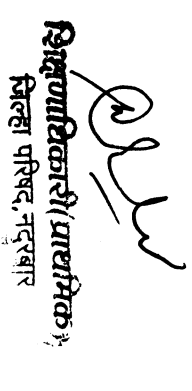 शिक्षणाधिकारी(प्राथमिक)
जिल्हा परिषद,नंदूरबार